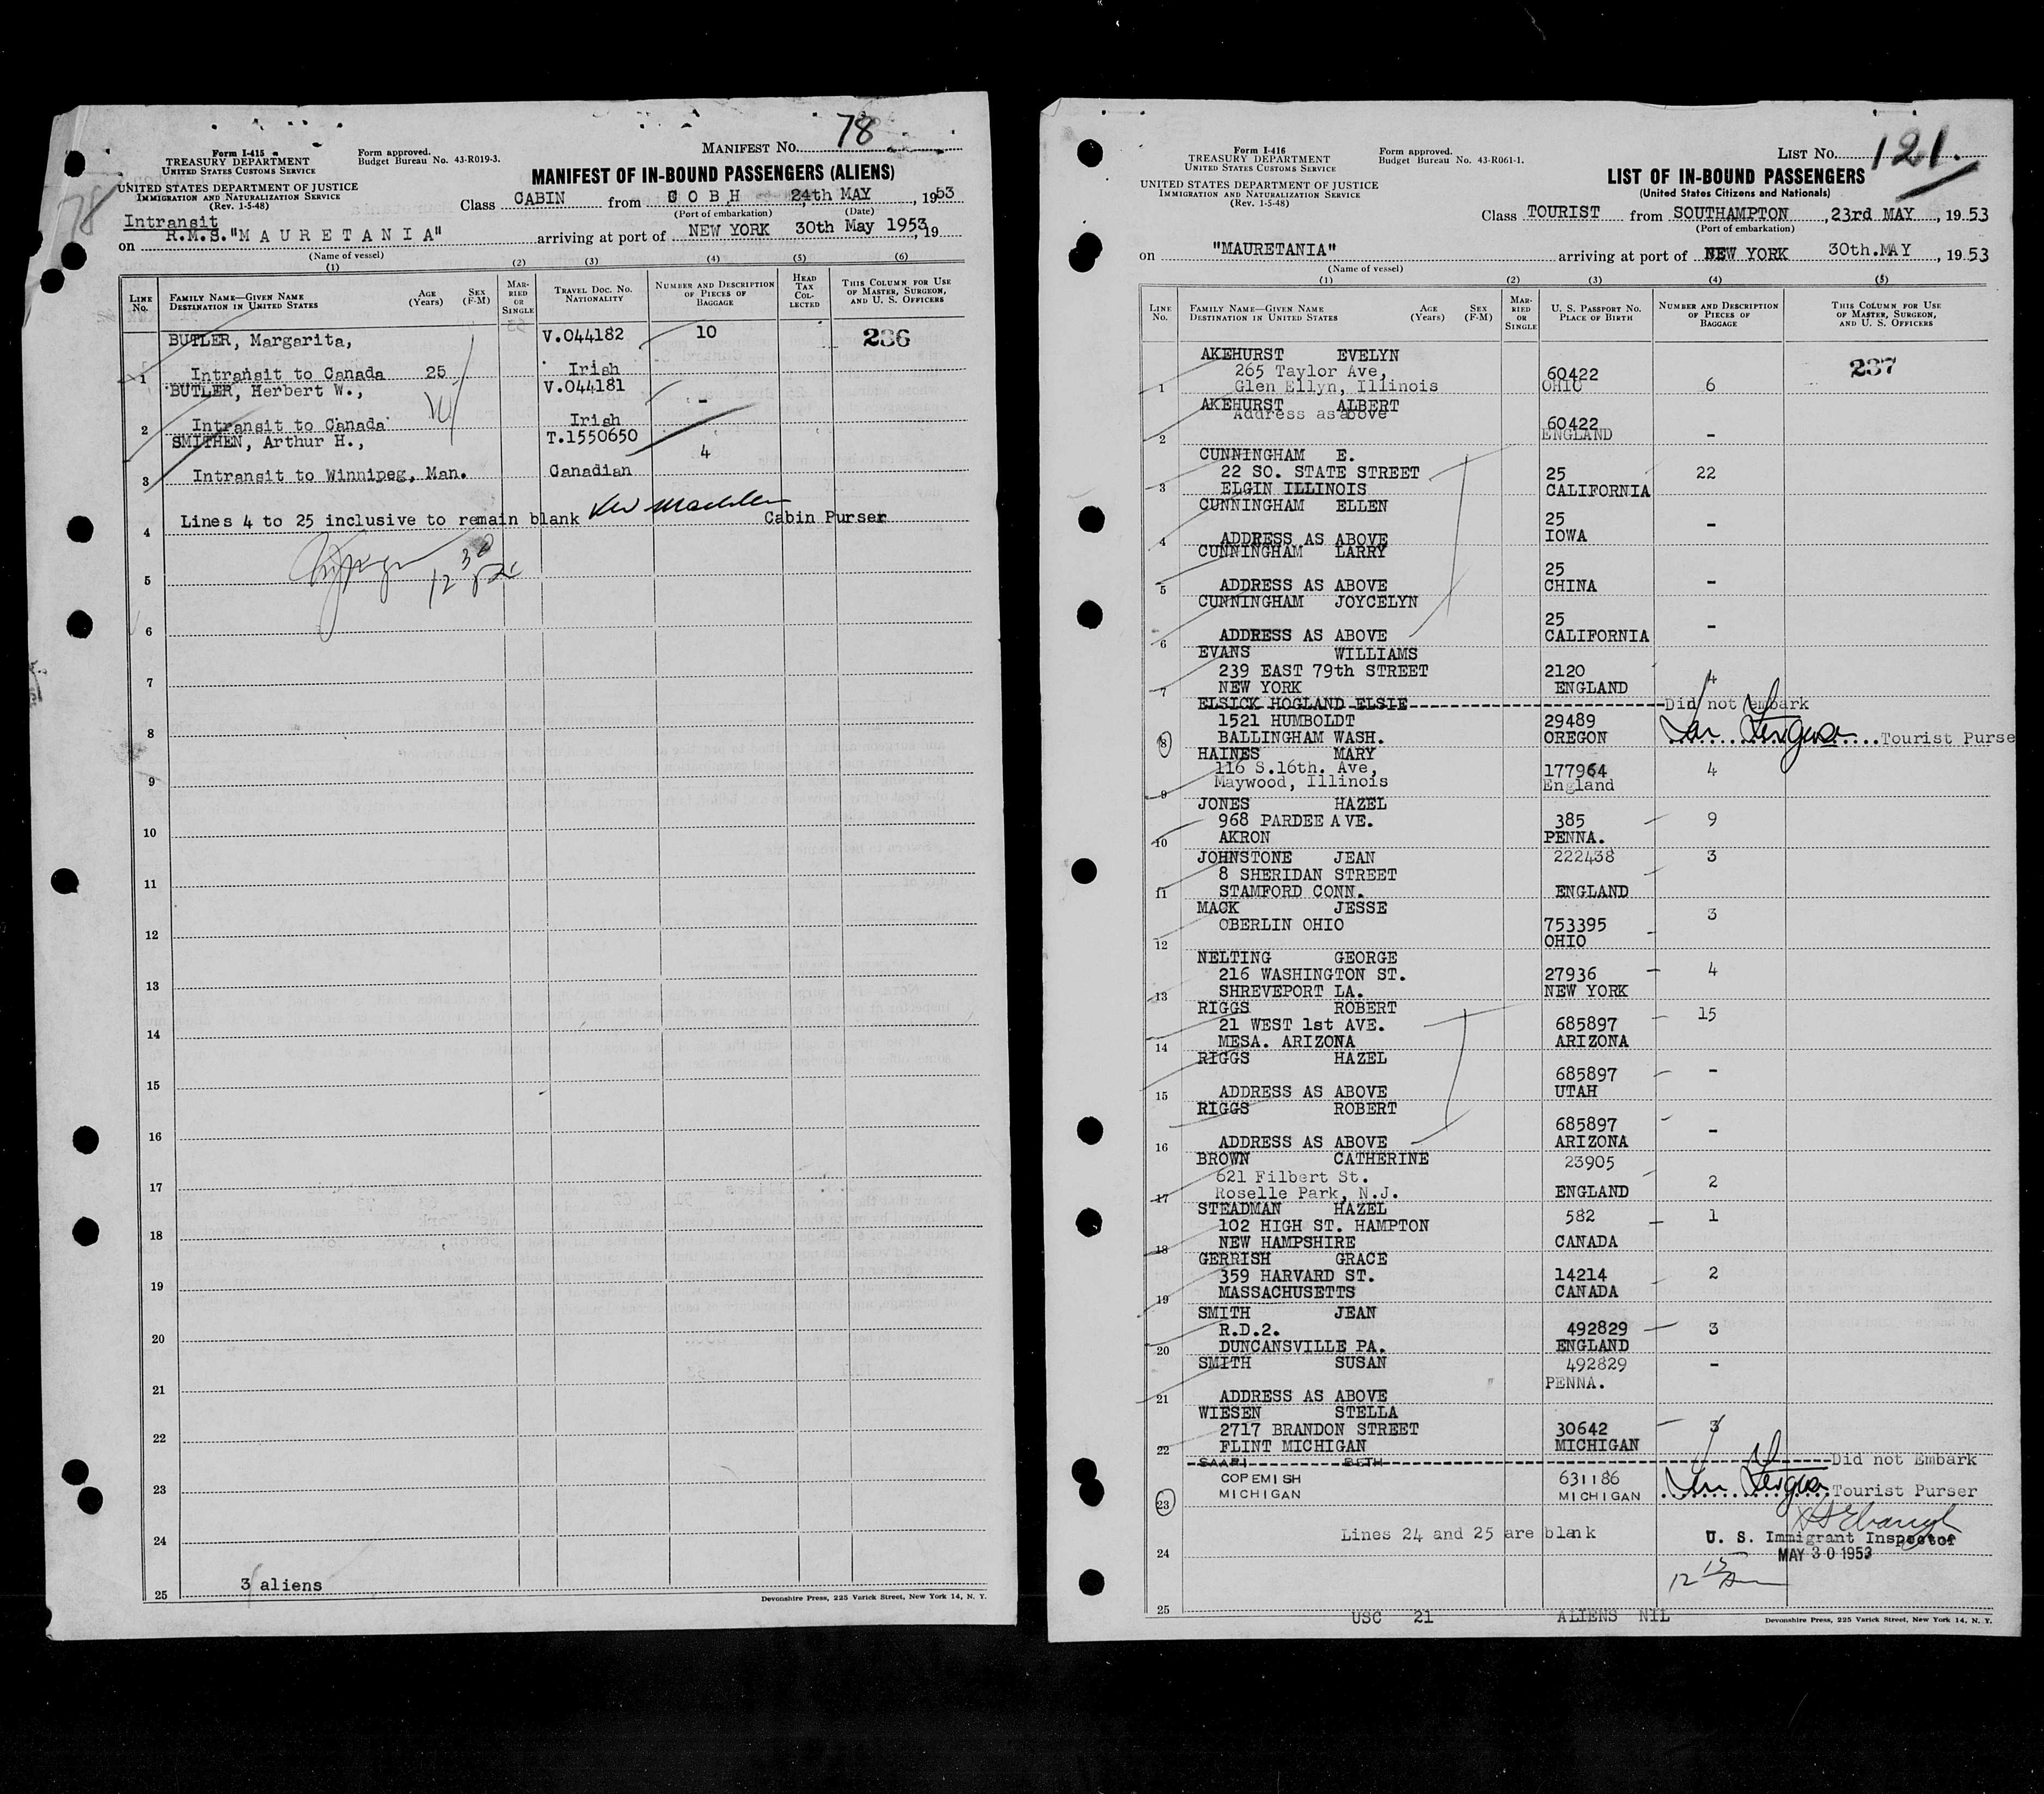 78
Form I-415
TREASURY DEPARTMENT
UNITED STATES CUSTOMS SERVICE
Form approved.
Budget Bureau No. 43-R019-3.
MANIFEST No. 78
UNITED STATES DEPARTMENT OF JUSTICE
IMMIGRATION AND NATURALIZATION SERVICE
(Rev. 1-5-48)
MANIFEST OF IN-BOUND PASSENGERS (ALIENS)
Class CABIN from COBH 24th MAY, 1953
(Port of embarkation) (Date)
Intransit
on R.M.S."MAURETANIA" arriving at port of NEW YORK 30th May 1953, 19
(Name of vessel)
(1) (2) (3) (4) (5) (6)
LINE No. FAMILY NAME—GIVEN NAME DESTINATION IN UNITED STATES AGE (Years) SEX (F-M) MARRIED OR SINGLE TRAVEL DOC. NO. NATIONALITY NUMBER AND DESCRIPTION OF PIECES OF BAGGAGE HEAD TAX COLLECTED THIS COLUMN FOR USE OF MASTER, SURGEON, AND U. S. OFFICERS
BUTLER, Margarita, V.044182 10 236
1 Intransit to Canada 25 Irish
BUTLER, Herbert W., V.044181 -
2 Intransit to Canada Irish
SMITHEN, Arthur H., T.1550650 4
3 Intransit to Winnipeg, Man. Canadian
4 Lines 4 to 25 inclusive to remain blank Cabin Purser
12 30
5
6
7
8
9
10
11
12
13
14
15
16
17
18
19
20
21
22
23
24
3 aliens
25
Devonshire Press, 225 Varick Street, New York 14, N. Y.
Form I-416
TREASURY DEPARTMENT
UNITED STATES CUSTOMS SERVICE
Form approved.
Budget Bureau No. 43-R061-1.
LIST No. 121.
UNITED STATES DEPARTMENT OF JUSTICE
IMMIGRATION AND NATURALIZATION SERVICE
(Rev. 1-5-48)
LIST OF IN-BOUND PASSENGERS
(United States Citizens and Nationals)
Class TOURIST from SOUTHAMPTON, 23rd MAY, 1953
(Port of embarkation)
on "MAURETANIA" arriving at port of NEW YORK 30th.MAY, 1953
(Name of vessel)
(1) (2) (3) (4) (5)
LINE No. FAMILY NAME—GIVEN NAME DESTINATION IN UNITED STATES AGE (Years) SEX (F-M) MARRIED OR SINGLE U. S. PASSPORT NO. PLACE OF BIRTH NUMBER AND DESCRIPTION OF PIECES OF BAGGAGE THIS COLUMN FOR USE OF MASTER, SURGEON, AND U. S. OFFICERS
AKEHURST EVELYN
265 Taylor Ave, 60422 237
1 Glen Ellyn, Illinois OHIO 6
AKEHURST ALBERT
Address as above 60422
2 ENGLAND -
CUNNINGHAM E.
22 SO. STATE STREET 25 22
3 ELGIN ILLINOIS CALIFORNIA
CUNNINGHAM ELLEN
25 -
4 ADDRESS AS ABOVE IOWA
CUNNINGHAM LARRY
25
5 ADDRESS AS ABOVE CHINA -
CUNNINGHAM JOYCELYN
25 -
6 ADDRESS AS ABOVE CALIFORNIA
EVANS WILLIAMS
239 EAST 79th STREET 2120 4
7 NEW YORK ENGLAND
ELSICK HOGLAND ELSIE Did not embark
1521 HUMBOLDT 29489
8 BALLINGHAM WASH. OREGON Ian Ferguson Tourist Purse
HAINES MARY
116 S.16th. Ave, 177964 4
9 Maywood, Illinois England
JONES HAZEL
968 PARDEE AVE. 385 9
10 AKRON PENNA.
JOHNSTONE JEAN 222438 3
8 SHERIDAN STREET
11 STAMFORD CONN. ENGLAND
MACK JESSE 3
OBERLIN OHIO 753395
12 OHIO
NELTING GEORGE
216 WASHINGTON ST. 27936 4
13 SHREVEPORT LA. NEW YORK
RIGGS ROBERT 15
21 WEST 1st AVE. 685897
14 MESA. ARIZONA ARIZONA
RIGGS HAZEL
685897 -
15 ADDRESS AS ABOVE UTAH
RIGGS ROBERT
685897 -
16 ADDRESS AS ABOVE ARIZONA
BROWN CATHERINE 23905
621 Filbert St. 2
17 Roselle Park, N.J. ENGLAND
STEADMAN HAZEL 582 1
102 HIGH ST. HAMPTON
18 NEW HAMPSHIRE CANADA
GERRISH GRACE
359 HARVARD ST. 14214 2
19 MASSACHUSETTS CANADA
SMITH JEAN
R.D.2. 492829 3
20 DUNCANSVILLE PA. ENGLAND
SMITH SUSAN 492829 -
PENNA.
21 ADDRESS AS ABOVE
WIESEN STELLA
2717 BRANDON STREET 30642 3
22 FLINT MICHIGAN MICHIGAN
SAARI BETH Did not Embark
COPEMISH 631186
23 MICHIGAN MICHIGAN Ian Ferguson Tourist Purser
Lines 24 and 25 are blank
U. S. Immigrant Inspector
24 MAY 30 1953
12 15
25
USC 21 ALIENS NIL
Devonshire Press, 225 Varick Street, New York 14, N. Y.